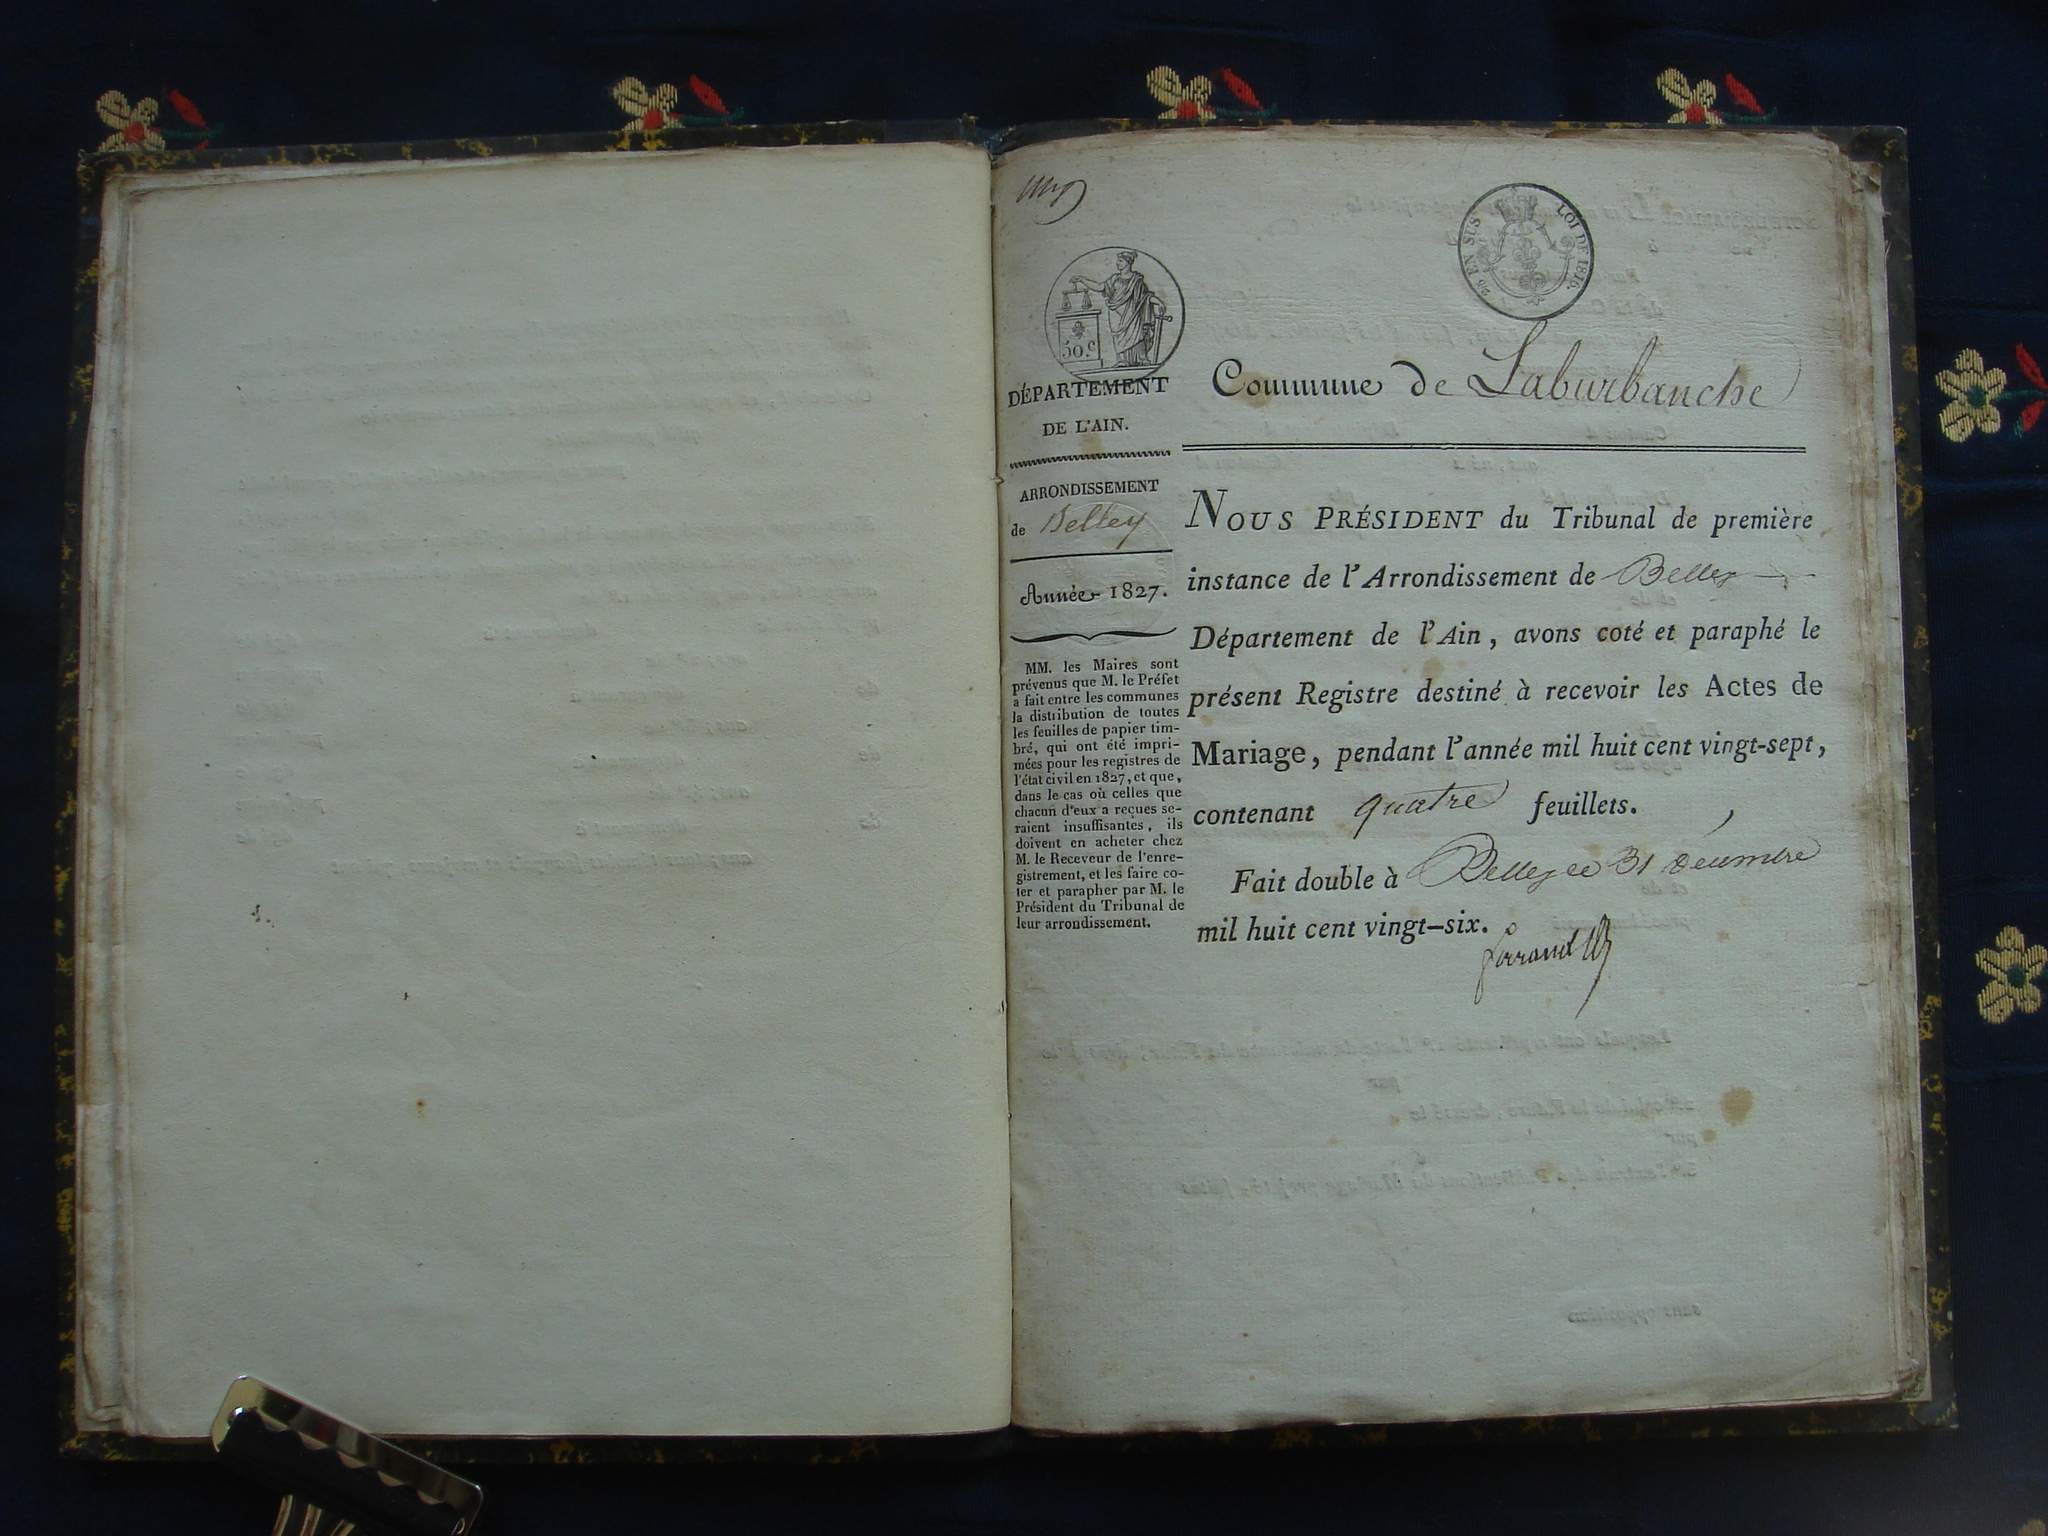 25 EN SUS LOI DE 1816.
50.c
DÉPARTEMENT
DE L'AIN.
ARRONDISSEMENT
de Belley
Année 1827.
MM. les Maires sont
prévenus que M. le Préfet
a fait entre les communes
la distribution de toutes
les feuilles de papier tim-
bré, qui ont été impri-
mées pour les registres de
l'état civil en 1827, et que,
dans le cas où celles que
chacun d'eux a reçues se-
raient insuffisantes, ils
doivent en acheter chez
M. le Receveur de l'enre-
gistrement, et les faire co-
ter et parapher par M. le
Président du Tribunal de
leur arrondissement.
Commune de Laburbanche
NOUS PRÉSIDENT du Tribunal de première
instance de l'Arrondissement de Belley
Département de l'Ain, avons coté et paraphé le
présent Registre destiné à recevoir les Actes de
Mariage, pendant l'année mil huit cent vingt-sept,
contenant quatre feuillets.
Fait double à Belley ce 31 décembre
mil huit cent vingt-six.